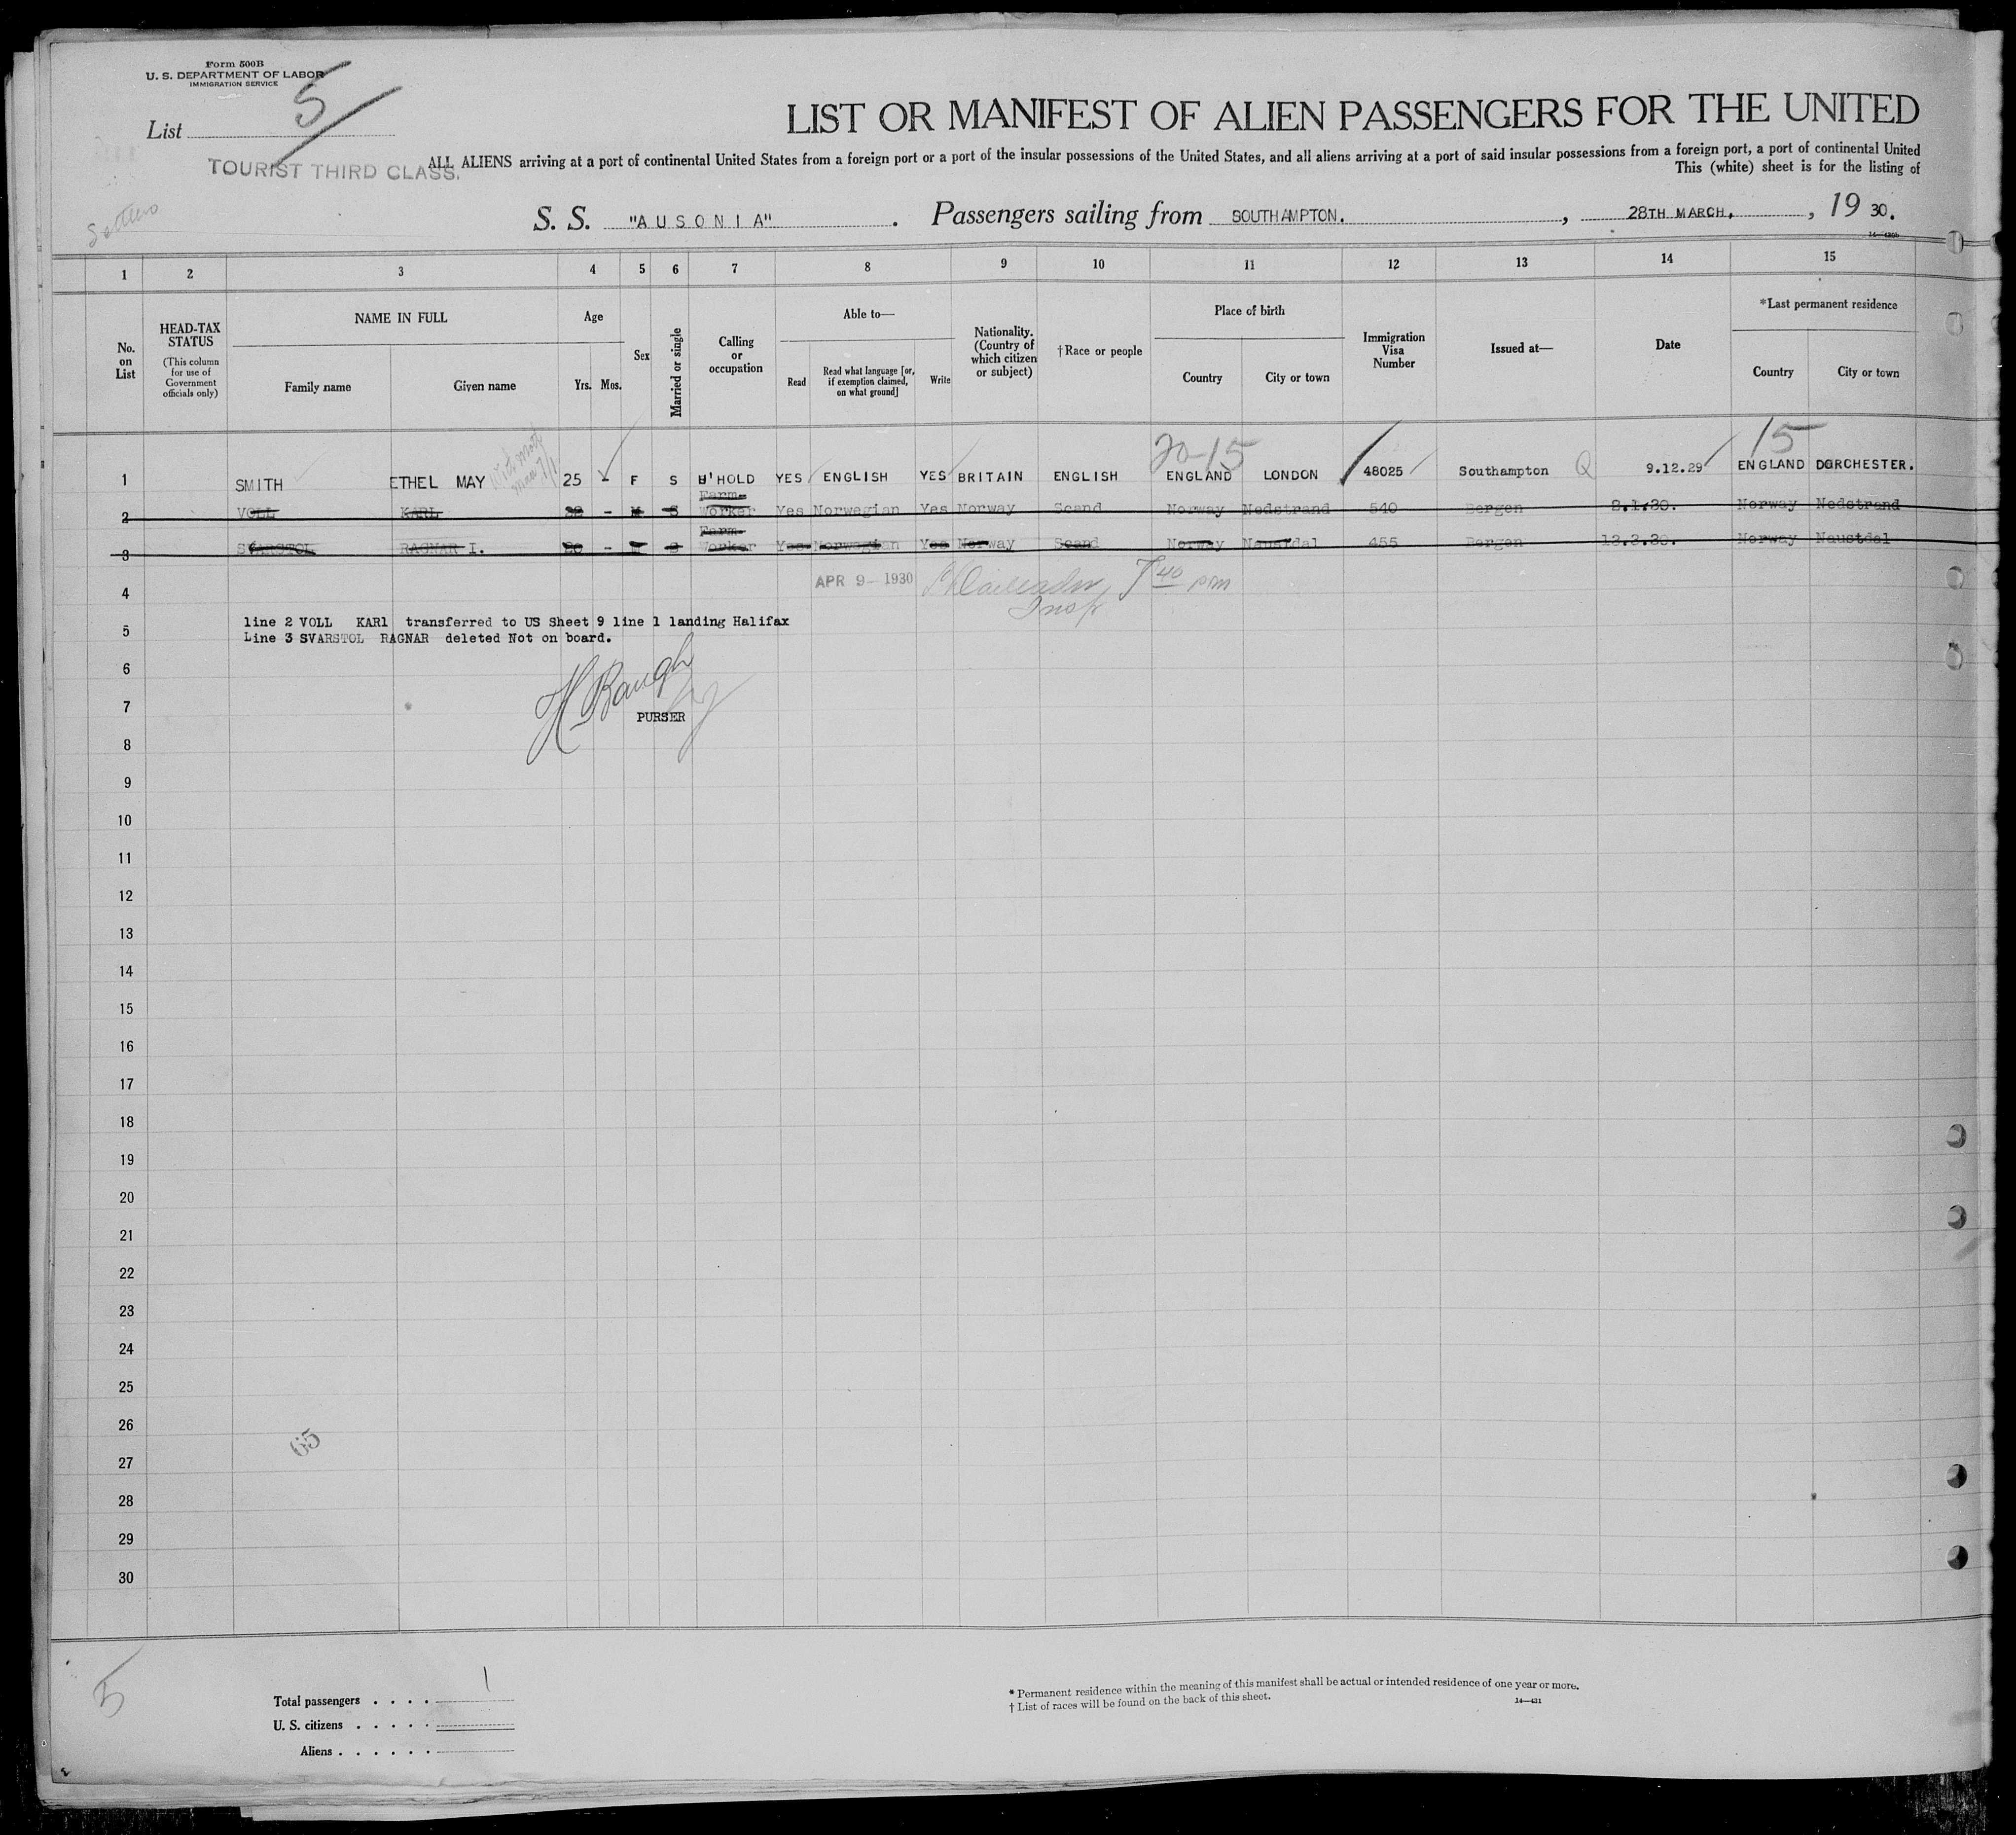 Form 500B
U. S. DEPARTMENT OF LABOR
IMMIGRATION SERVICE
List 5
TOURIST THIRD CLASS.
LIST OR MANIFEST OF ALIEN PASSENGERS FOR THE UNITED
ALL ALIENS arriving at a port of continental United States from a foreign port or a port of the insular possessions of the United States, and all aliens arriving at a port of said insular possessions from a foreign port, a port of continental United
This (white) sheet is for the listing of
S. S. "AUSONIA" . Passengers sailing from SOUTHAMPTON. , 28TH MARCH. , 19 30.
1 2 3 4 5 6 7 8 9 10 11 12 13 14 15
No. on List
HEAD-TAX STATUS
(This column for use of Government officials only)
NAME IN FULL
Family name Given name
Age
Yrs. Mos.
Sex
Married or single
Calling or occupation
Able to—
Read
Read what language [or, if exemption claimed, on what ground]
Write
Nationality. (Country of which citizen or subject)
†Race or people
Place of birth
Country City or town
Immigration Visa Number
Issued at—
Date
*Last permanent residence
Country City or town
20-15 15
1 SMITH ETHEL MAY 25 - F S H'HOLD YES ENGLISH YES BRITAIN ENGLISH ENGLAND LONDON 48025 Southampton Q 9.12.29 ENGLAND DORCHESTER.
2 VOLL KARL - M S Farm- Worker Yes Norwegian Yes Norway Scand Norway Nedstrand 540 Bergen 8.1.30. Norway Nedstrand
3 SVARSTOL RAGNAR I. - M S Farm- Worker Yes Norwegian Yes Norway Scand Norway Naustdal 455 Bergen 13.3.30. Norway Naustdal
APR 9- 1930 7 40 pm
Insp
4
line 2 VOLL KARl transferred to US Sheet 9 line 1 landing Halifax
5
Line 3 SVARSTOL RAGNAR deleted Not on board.
6
H Baugh
7
PURSER
8
9
10
11
12
13
14
15
16
17
18
19
20
21
22
23
24
25
26
65
27
28
29
30
5
Total passengers . . . . 1
U. S. citizens . . . . .
Aliens . . . . . .
* Permanent residence within the meaning of this manifest shall be actual or intended residence of one year or more.
† List of races will be found on the back of this sheet.
14—431